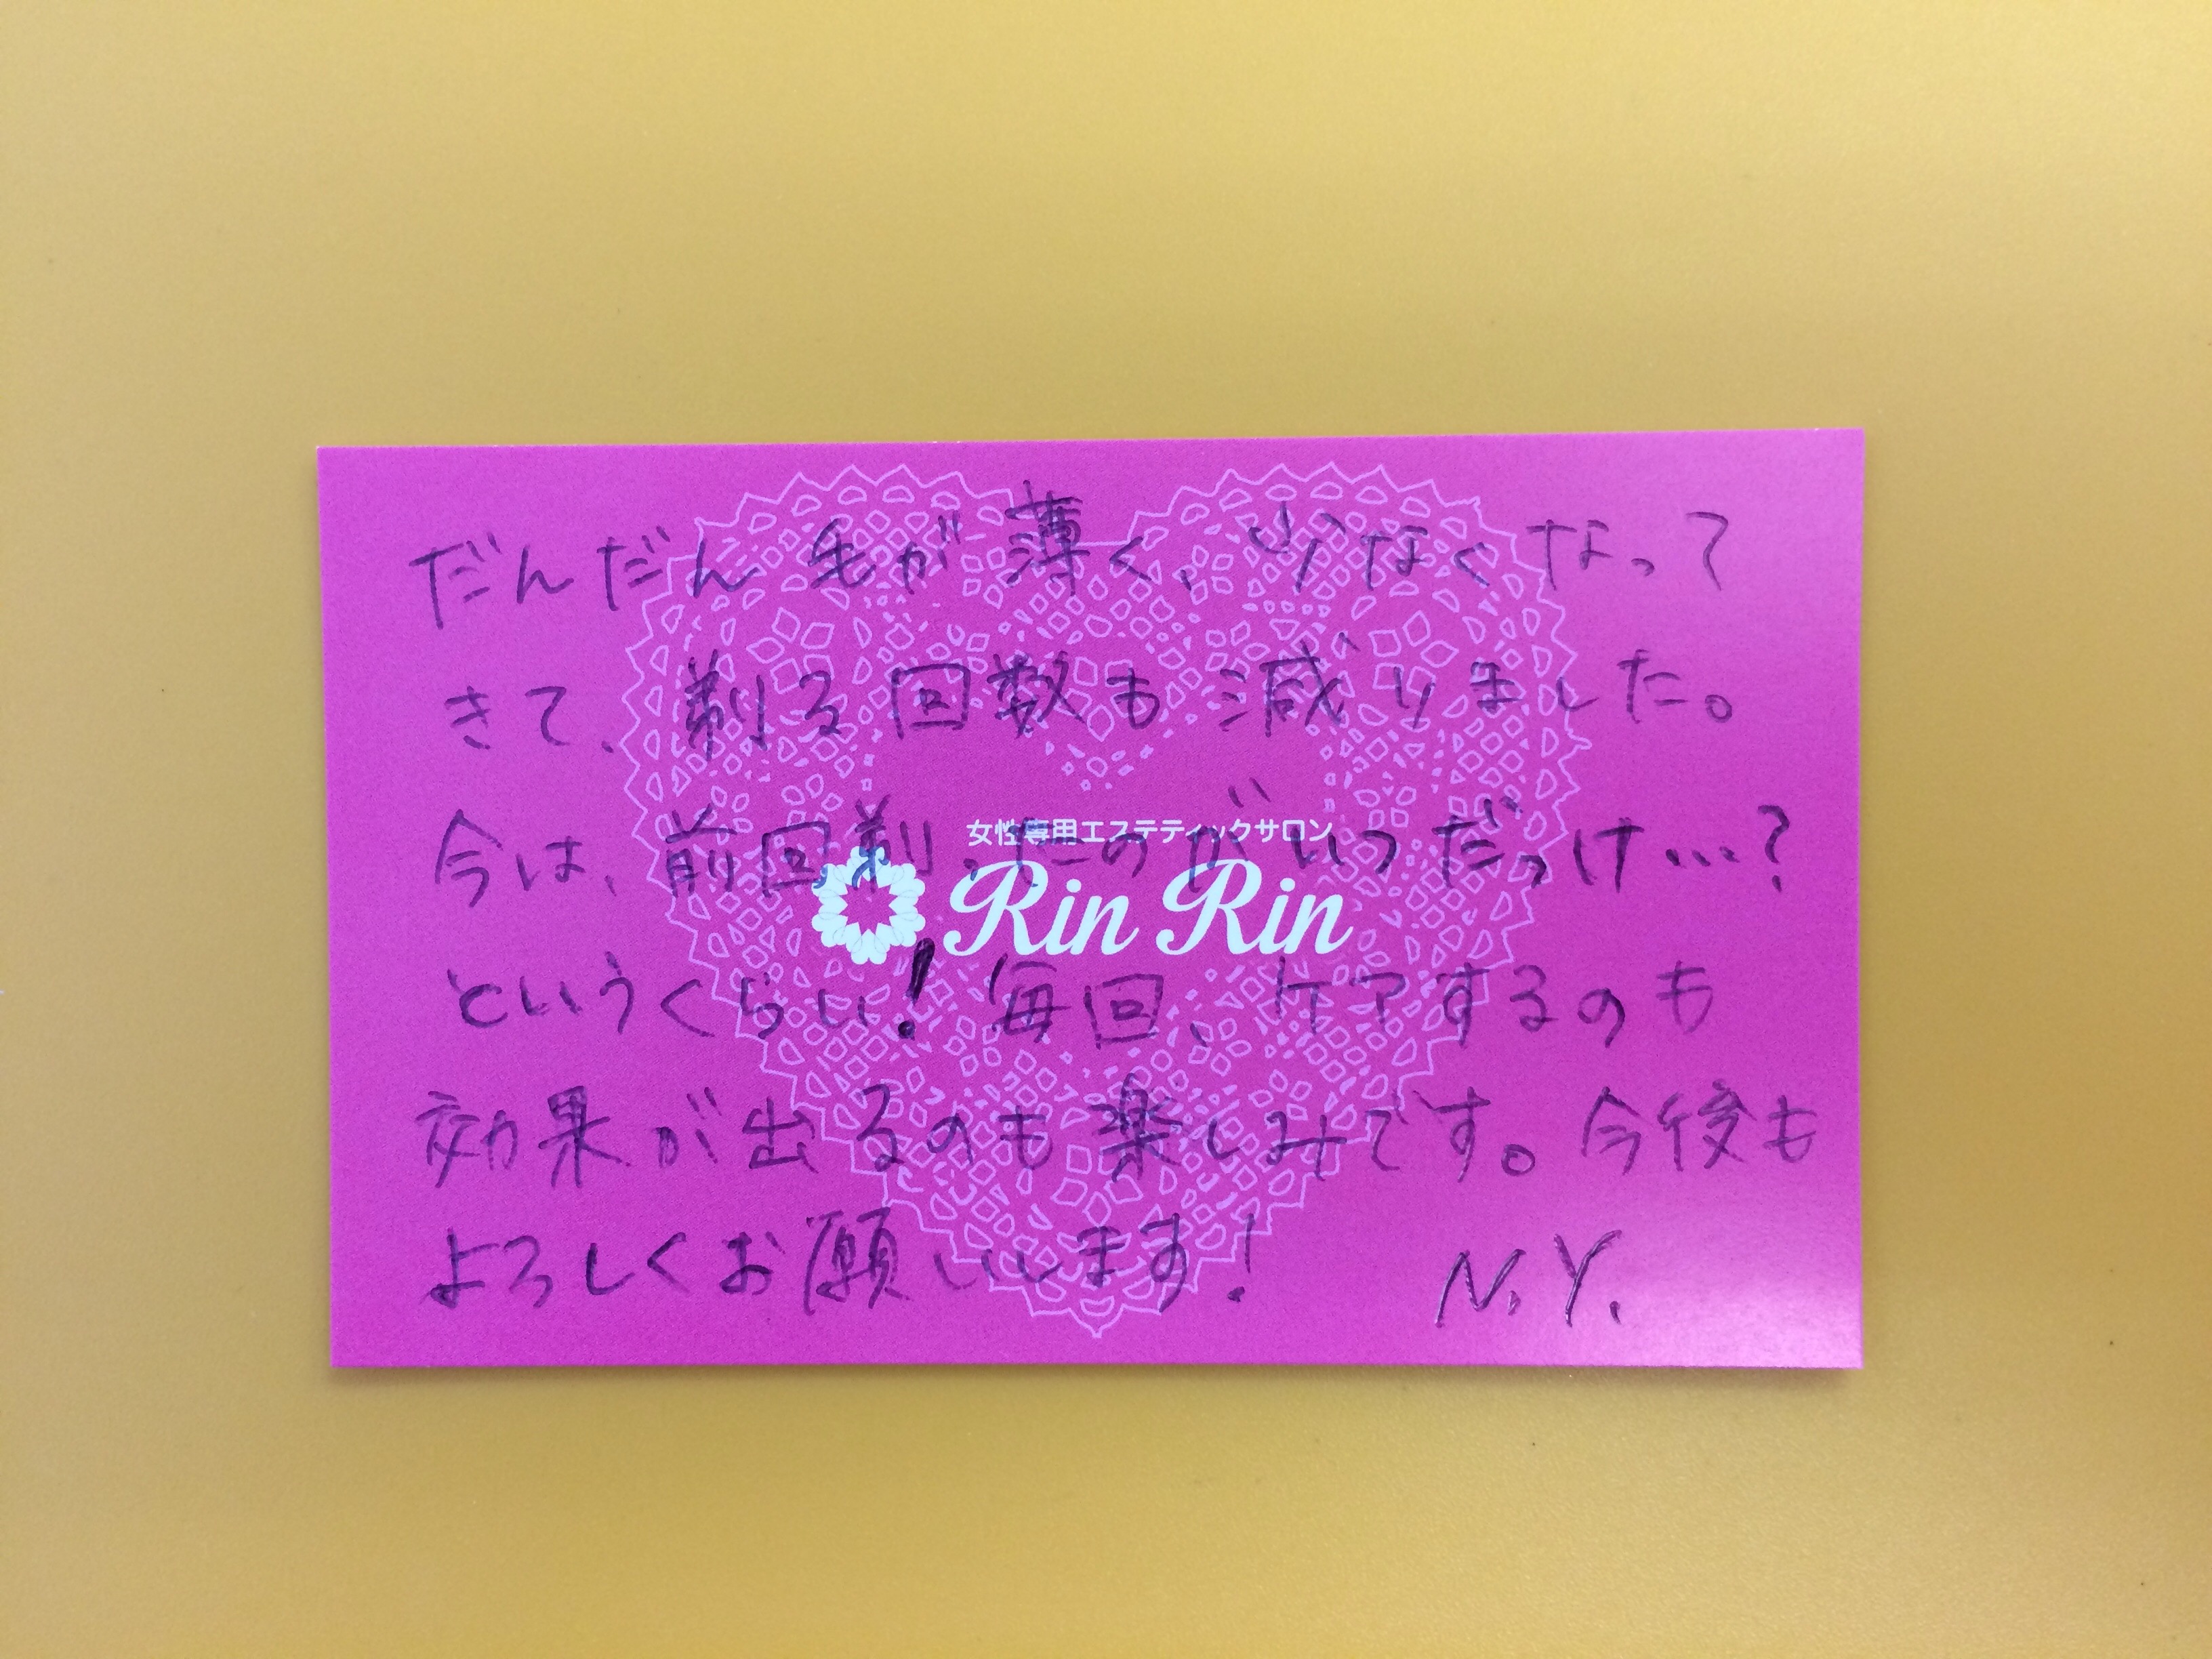 だんだん毛が薄く、少なくなって
きて、剃る回数も減りました。
女性専用エステティックサロン
今は、前回剃ったのがいつだっけ…?
Rin Rin
というくらい!毎回、ケアするのも
効果が出るのも楽しみです。今後も
よろしくお願いします!
N.Y.